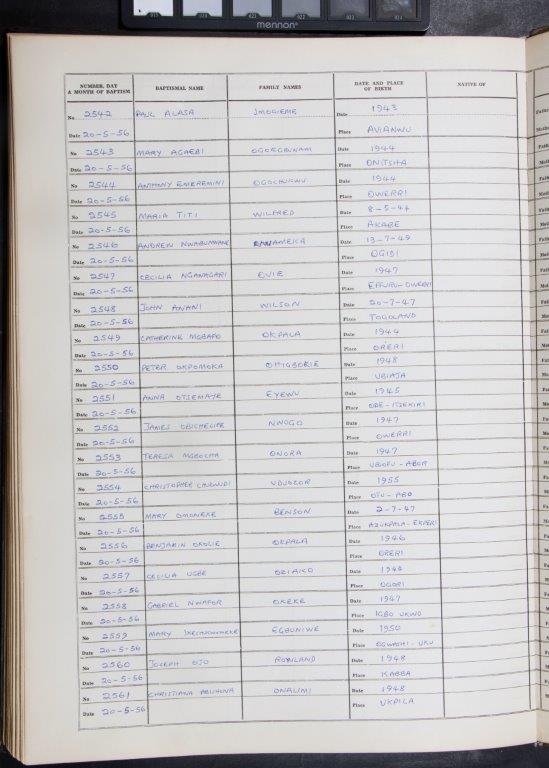 mennon
NUMBER, DAY & MONTH OF BAPTISM BAPTISMAL NAME FAMILY NAMES DATE AND PLACE OF BIRTH NATIVE OF
No 2542 PAUL ALASA IMOGIEME Date 1943
Date 20-5-56 Place AVIANWU
No 2543 MARY AGAEBI Date 1944
Date 20-5-56 Place ONITSHA
No 2544 ANTHONY OGOCHUKWU Date 1944
Date 20-5-56 Place OWERRI
No 2545 MARIA TITI WILFRED Date 8-5-44
Date 20-5-56 Place AKABE
No 2546 ANDREW Date 13-7-49
Date 20-5-56 Place OGIDI
No 2547 CECILIA NGANAGARI OVIE Date 1947
Date 20-5-56 Place
No 2548 JOHN ANANI WILSON Date 20-7-47
Date 20-5-56 Place TOGOLAND
No 2549 CATHERINE MGBAFO OKPALA Date 1944
Date 20-5-56 Place ORERI
No 2550 PETER OKPOMOKA Date 1948
Date 20-5-56 Place UBIAJA
No 2551 ANNA OTSEMAYE EYEWU Date 1945
Date 20-5-56 Place ODE-ITSEKIRI
No 2552 JAMES NWOGO Date 1947
Date 20-5-56 Place OWERRI
No 2553 TERESA MGBOCHA ONORA Date 1947
Date 20-5-56 Place
No 2554 CHRISTOPHER UDUOZOR Date 1955
Date 20-5-56 Place
No 2555 MARY OMONEKE BENSON Date 2-7-47
Date 20-5-56 Place
No 2556 BENJAMIN OKOLIE OKPALA Date 1946
Date 20-5-56 Place ORERI
No 2557 CECILIA UGBE OZIAKO Date
Date 20-5-56 Place OGORI
No 2558 GABRIEL NWAFOR OKEKE Date 1947
Date 20-5-56 Place IGBO UKWU
No 2559 MARY EGBUNIWE Date 1950
Date 20-5-56 Place OGWASHI-UKU
No 2560 JOSEPH OJO ROWLAND Date 1948
Date 20-5-56 Place KABBA
No 2561 CHRISTIANA ONALIMI Date 1948
Date 20-5-56 Place UKPILA